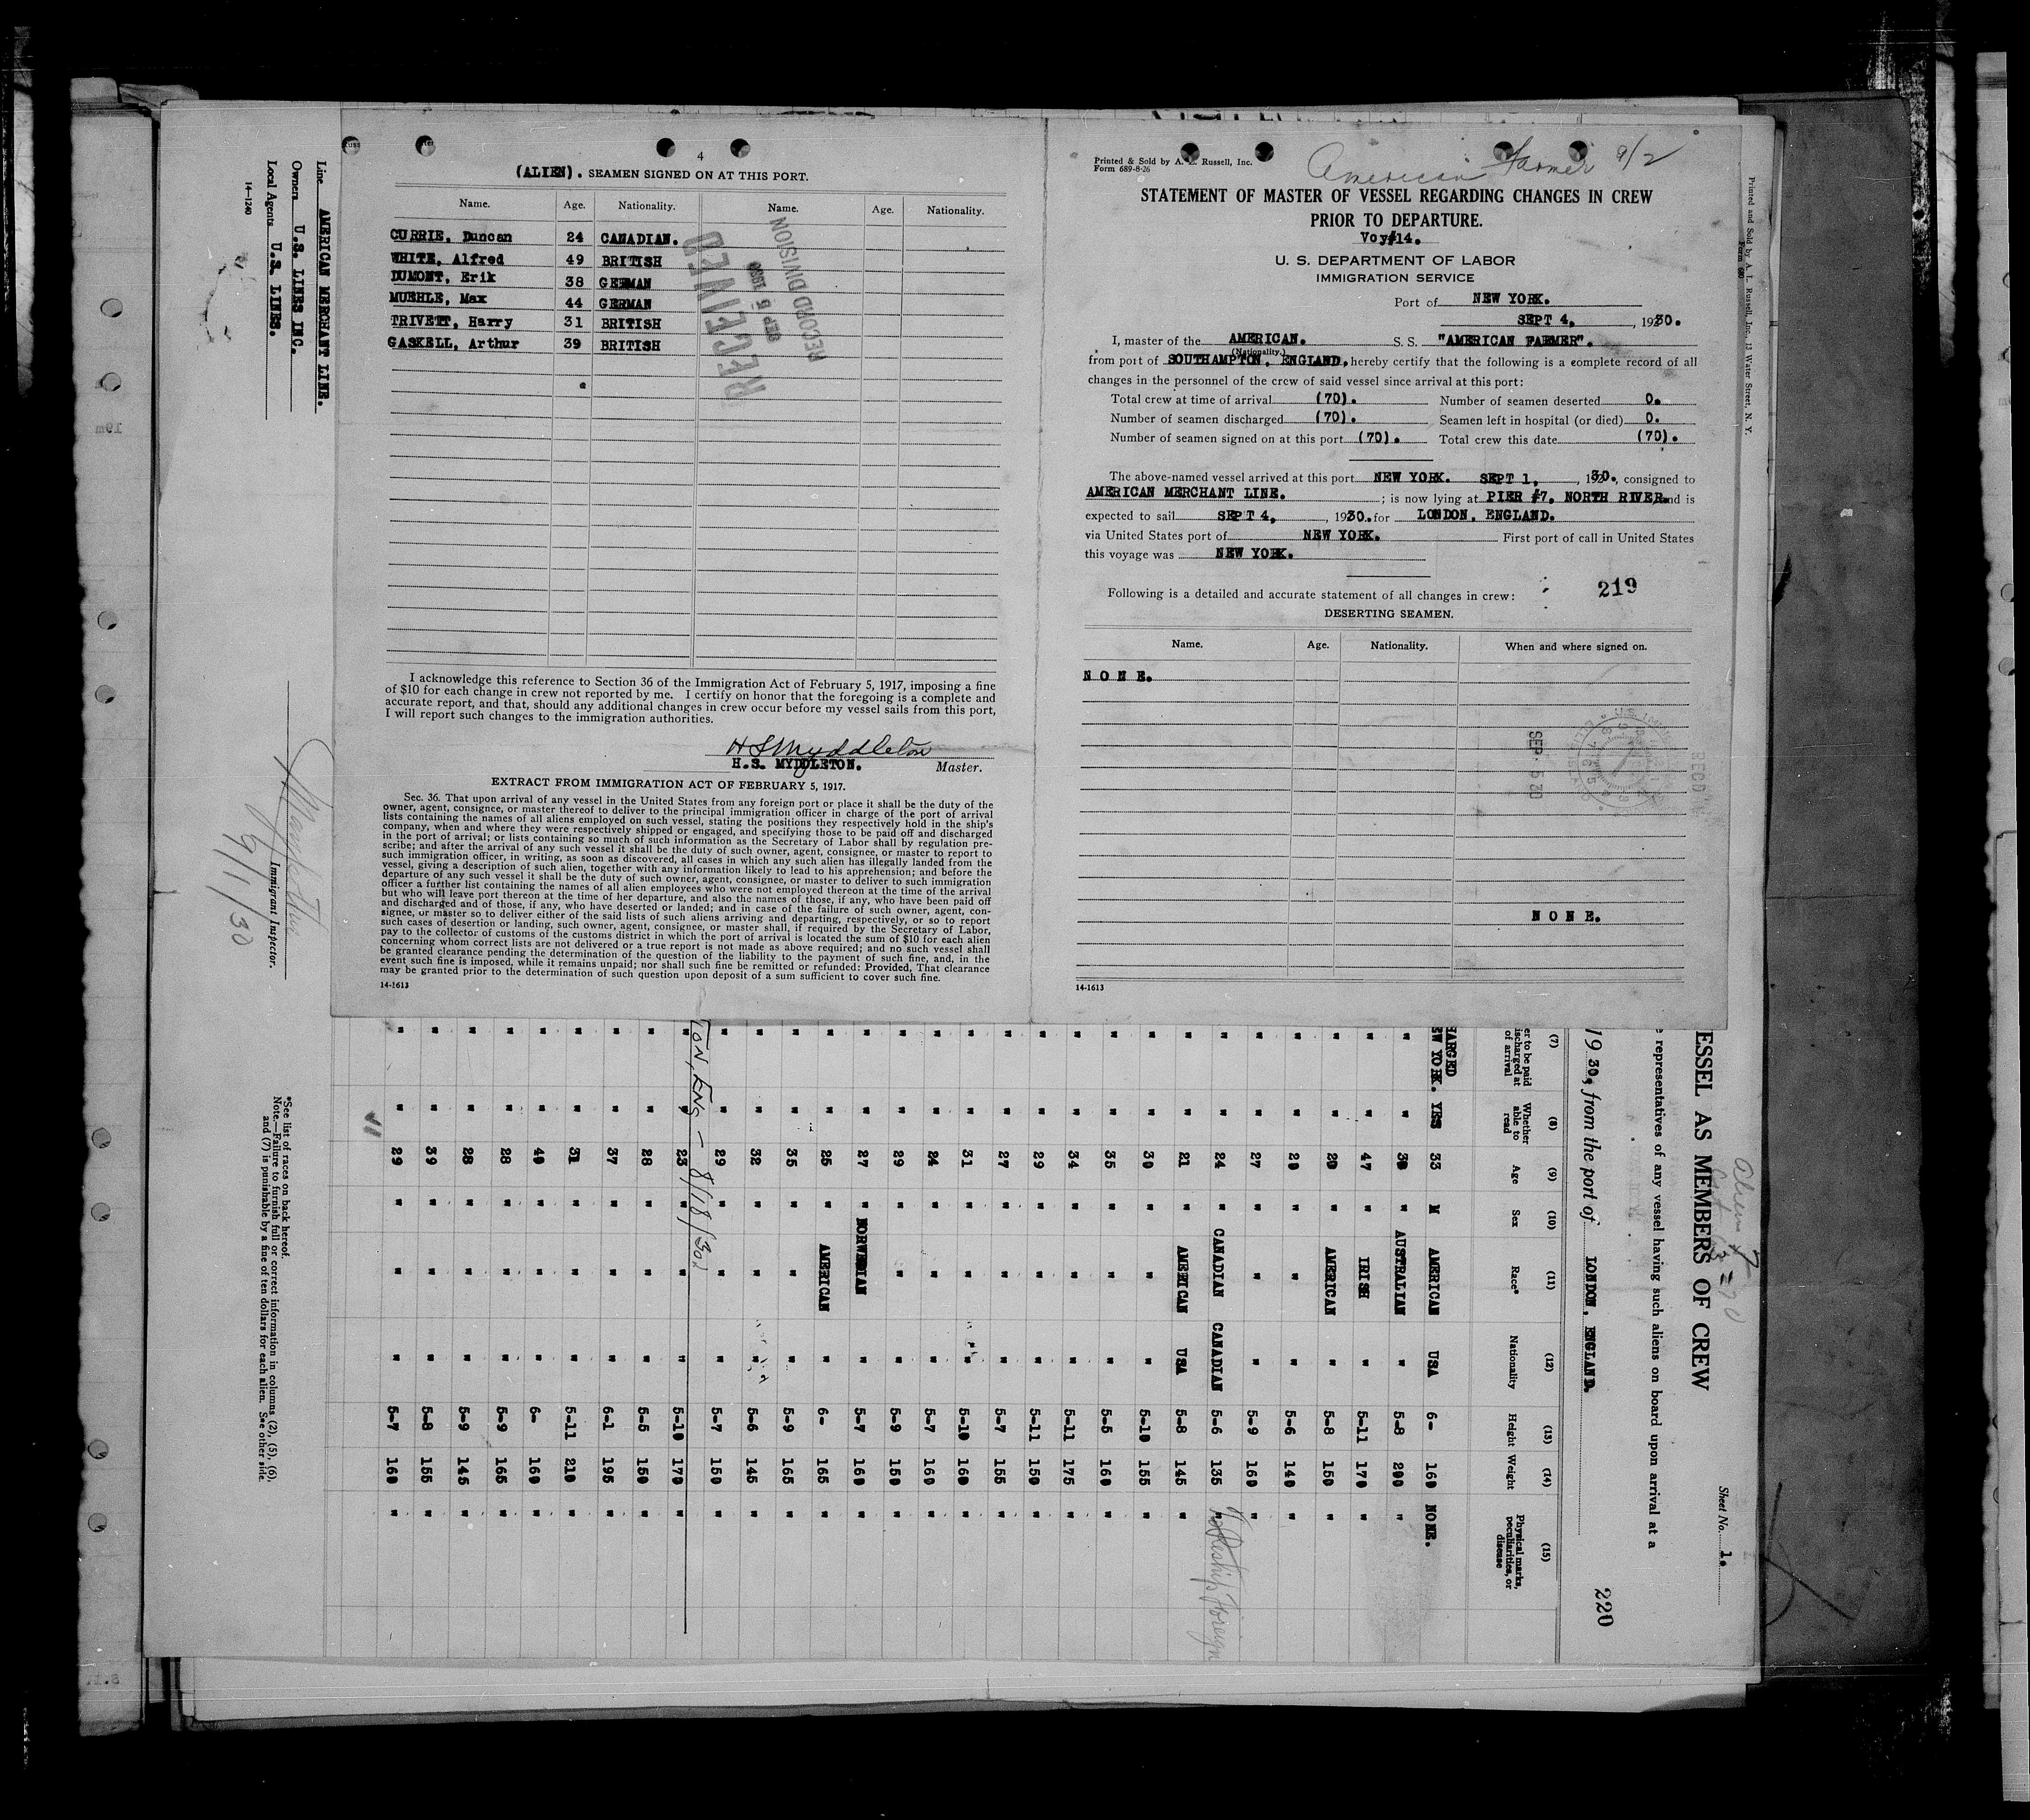 4
(ALIEN). SEAMEN SIGNED ON AT THIS PORT.
Name. Age. Nationality. Name. Age. Nationality.
CURRIE, Duncan 24 CANADIAN.
WHITE, Alfred 49 BRITISH
DUMONT, Erik 38 GERMAN
MUEHLE, Max 44 GERMAN
TRIVETT, Harry 31 BRITISH
GASKELL, Arthur 39 BRITISH
RECEIVED
SEP 5 1930
RECORD DIVISION
I acknowledge this reference to Section 36 of the Immigration Act of February 5, 1917, imposing a fine
of $10 for each change in crew not reported by me. I certify on honor that the foregoing is a complete and
accurate report, and that, should any additional changes in crew occur before my vessel sails from this port,
I will report such changes to the immigration authorities.
H S Myddleton
H.S. MYDDLETON. Master.
EXTRACT FROM IMMIGRATION ACT OF FEBRUARY 5, 1917.
Sec. 36. That upon arrival of any vessel in the United States from any foreign port or place it shall be the duty of the
owner, agent, consignee, or master thereof to deliver to the principal immigration officer in charge of the port of arrival
lists containing the names of all aliens employed on such vessel, stating the positions they respectively hold in the ship's
company, when and where they were respectively shipped or engaged, and specifying those to be paid off and discharged
in the port of arrival; or lists containing so much of such information as the Secretary of Labor shall by regulation pre-
scribe; and after the arrival of any such vessel it shall be the duty of such owner, agent, consignee, or master to report to
such immigration officer, in writing, as soon as discovered, all cases in which any such alien has illegally landed from the
vessel, giving a description of such alien, together with any information likely to lead to his apprehension; and before the
departure of any such vessel it shall be the duty of such owner, agent, consignee, or master to deliver to such immigration
officer a further list containing the names of all alien employees who were not employed thereon at the time of the arrival
but who will leave port thereon at the time of her departure, and also the names of those, if any, who have been paid off
and discharged and of those, if any, who have deserted or landed; and in case of the failure of such owner, agent, con-
signee, or master so to deliver either of the said lists of such aliens arriving and departing, respectively, or so to report
such cases of desertion or landing, such owner, agent, consignee, or master shall, if required by the Secretary of Labor,
pay to the collector of customs of the customs district in which the port of arrival is located the sum of $10 for each alien
concerning whom correct lists are not delivered or a true report is not made as above required; and no such vessel shall
be granted clearance pending the determination of the question of the liability to the payment of such fine, and, in the
event such fine is imposed, while it remains unpaid; nor shall such fine be remitted or refunded: Provided, That clearance
may be granted prior to the determination of such question upon deposit of a sum sufficient to cover such fine.
14-1613
Printed & Sold by A. L. Russell, Inc.
Form 689-8-26
American Farmer 9/2
STATEMENT OF MASTER OF VESSEL REGARDING CHANGES IN CREW
PRIOR TO DEPARTURE.
Voy#14.
U. S. DEPARTMENT OF LABOR
IMMIGRATION SERVICE
Port of NEW YORK.
SEPT 4, 1930.
I, master of the AMERICAN. S. S. "AMERICAN FARMER".
(Nationality.)
from port of SOUTHAMPTON, ENGLAND, hereby certify that the following is a complete record of all
changes in the personnel of the crew of said vessel since arrival at this port:
Total crew at time of arrival (70). Number of seamen deserted 0.
Number of seamen discharged (70). Seamen left in hospital (or died) 0.
Number of seamen signed on at this port (70). Total crew this date (70).
The above-named vessel arrived at this port NEW YORK. SEPT 1, 1930., consigned to
AMERICAN MERCHANT LINE. ; is now lying at PIER #7, NORTH RIVER. and is
expected to sail SEPT 4, 1930. for LONDON, ENGLAND.
via United States port of NEW YORK. First port of call in United States
this voyage was NEW YORK.
219
Following is a detailed and accurate statement of all changes in crew:
DESERTING SEAMEN.
Name. Age. Nationality. When and where signed on.
N O N E.
SEP 5 30
REC'D
N O N E.
14-1613
Printed and Sold by A. L. Russell, Inc., 13 Water Street, N. Y.
Form 680
Line AMERICAN MERCHANT LINE.
Owners U.S. LINES INC.
Local Agents U.S. LINES.
14-1240
Immigrant Inspector.
9/1/30
*See list of races on back hereof.
Note.—Failure to furnish full or correct information in columns (2), (5), (6),
and (7) is punishable by a fine of ten dollars for each alien. See other side.
Sheet No. 1.
220
ESSEL AS MEMBERS OF CREW
e representatives of any vessel having such aliens on board upon arrival at a
1930, from the port of LONDON, ENGLAND.
(7) (8) (9) (10) (11) (12) (13) (14) (15)
er to be paid ischarged at of arrival Whether able to read Age Sex Race* Nationality Height Weight Physical marks, peculiarities, or disease
HARGED
EW YORK. YES 33 M AMERICAN USA 6- 160 NONE.
" " 30 " AUSTRALIAN " 5-8 200 "
" " 47 " IRISH " 5-11 170 "
" " 20 " AMERICAN " 5-8 150 "
" " 20 " " " 5-6 140 "
" " 27 " " " 5-9 160 "
" " 24 " CANADIAN CANADIAN 5-6 135 "
" " 21 " AMERICAN USA 5-8 145 "
" " 30 " " " 5-10 155 "
" " 35 " " " 5-5 160 "
" " 34 " " " 5-11 175 "
" " 29 " " " 5-11 150 "
" " 27 " " " 5-7 155 "
" " 31 " " " 5-10 160 "
" " 24 " " " 5-7 160 "
" " 29 " " " 5-9 150 "
" " 27 " NORWEGIAN " 5-7 160 "
" " 25 " AMERICAN " 6- 165 "
" " 35 " " " 5-9 165 "
" " 32 " " " 5-6 145 "
" " 29 " " " 5-7 150 "
TON, ENG - 8/18/30
" " 23 " " " 5-10 170 "
" " 28 " " " 5-5 150 "
" " 37 " " " 6-1 195 "
" " 31 " " " 5-11 210 "
" " 40 " " " 6- 160 "
" " 28 " " " 5-9 165 "
" " 28 " " " 5-9 145 "
" " 39 " " " 5-8 155 "
" " 29 " " " 5-7 160 "